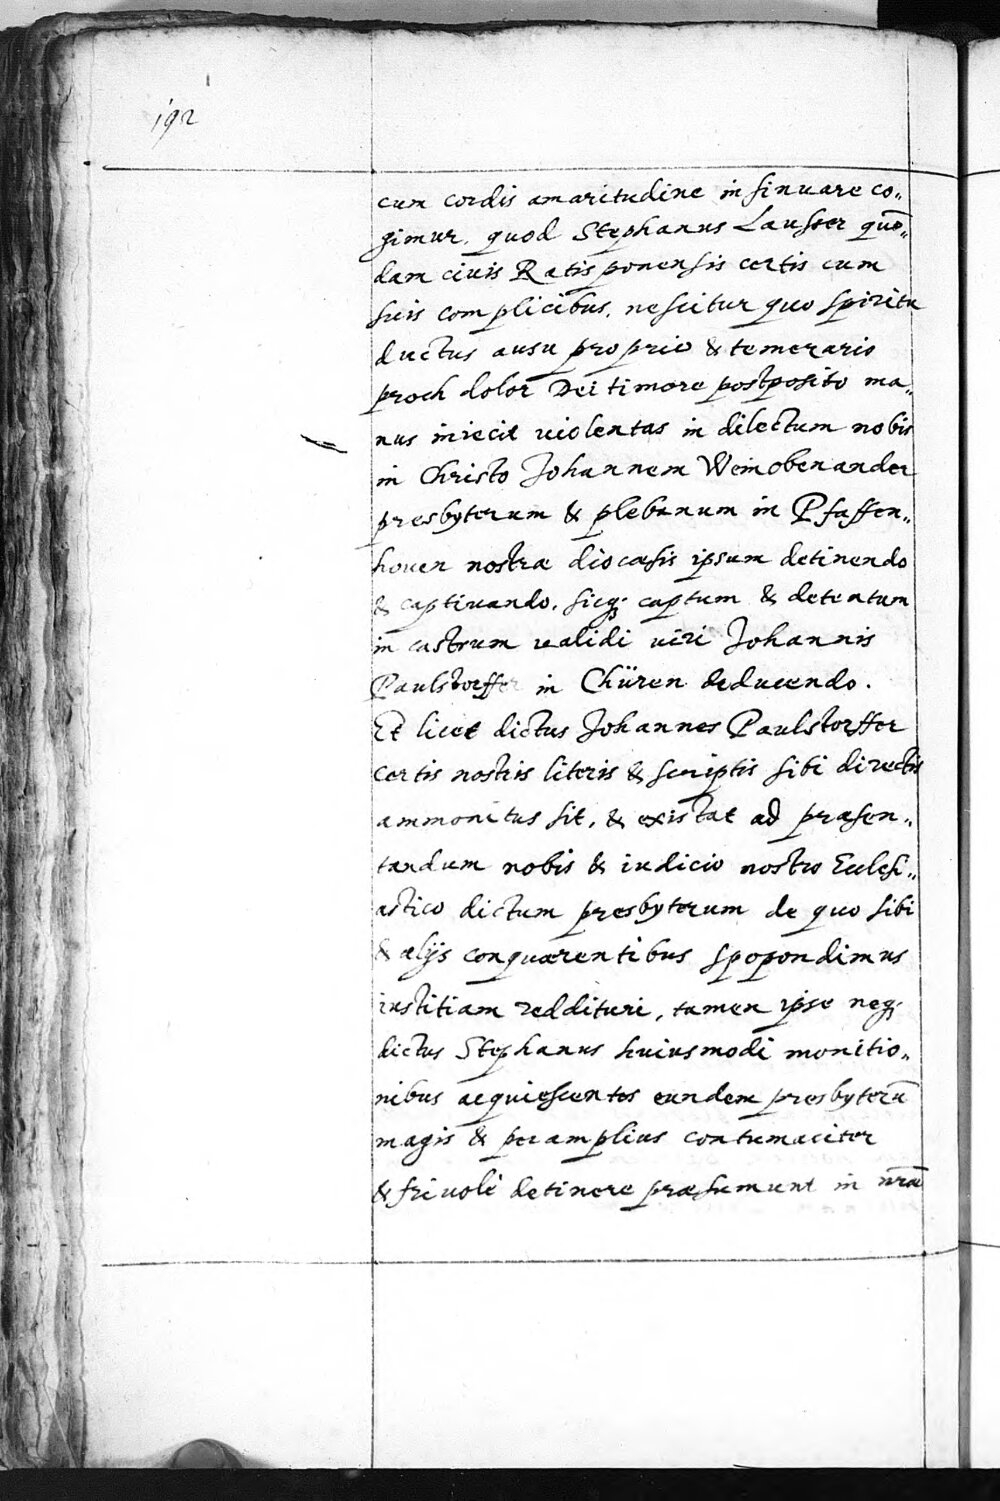 192
cum cordis amaritudine insinuare co„
gimur, quod Stephanus Lausser quō„
dam ciuis Ratisponensis certis cum
suis complicibus, nescitur quo spiritu
ductus ausu proprio & temerario
proch dolor Dei timore postposito ma„
nus iniecit violentas in dilectum nobis
in Christo Johannem Weinobenander
presbyterum & plebanum in Pfaffen„
houen nostræ diocæsis ipsum detinendo
& captiuando, sicq; captum & detentum
in castrum validi viri Johannis
Paulstorffer in Chüren deducendo.
Et licet dictus Johannes Paulstorffer
certis nostris literis & scriptis sibi directis
ammonitus sit, & existat ad præsen„
tandum nobis & iudicio nostro Eclesi„
astico dictum presbyterum de quo sibi
& alijs conquærentibus spopondimus
iustitiam reddituri, tamen ipse neq;
dictus Stephanus huiusmodi monitio„
nibus acquiescentes eundem presbyterū
magis & per amplius contumaciter
& friuolè detinere præsumunt in nr̄a